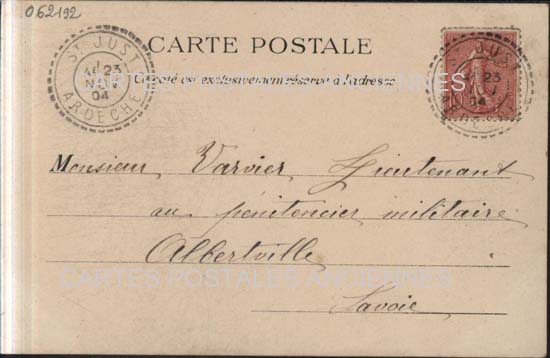 062192
CARTE POSTALE
Ce côté est exclusivement réservé à l'adresse
ST JUST
23
NOV
04
ARDECHE
ST JUST
23
04
10
CARTES POSTALES ANCIENNES
Monsieur Varvier, Lieutenant
au pénitencier militaire
Albertville
CARTES POSTALES ANCIENNES
Savoie